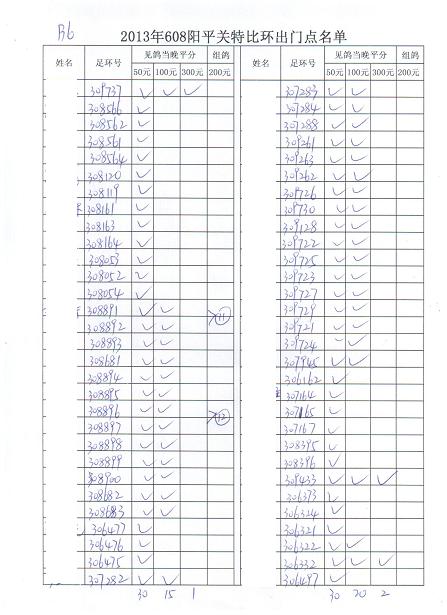 B6
2013年608阳平关特比环出门点名单
姓名 足环号 见鸽当晚平分 组鸽 姓名 足环号 见鸽当晚平分 组鸽
50元 100元 300元 200元 50元 100元 300元 200元
309737 ✓ ✓ ✓ 307283 ✓ ✓
308566 ✓ 307284 ✓ ✓
308562 ✓ 307288 ✓ ✓
308561 ✓ 309261 ✓ ✓
308564 ✓ 309263 ✓ ✓
308120 ✓ 309262 ✓ ✓
308119 ✓ 309726 ✓ ✓
308161 ✓ 309730 ✓ ✓
308163 ✓ 309128 ✓ ✓
308164 ✓ 309722 ✓ ✓
308053 ✓ 309725 ✓ ✓
308052 ✓ 309723 ✓ ✓
308054 ✓ 309727 ✓ ✓
308891 ✓ ✓ 309729 ✓ ✓
>⑪
308892 ✓ ✓ 309721 ✓ ✓
308893 ✓ ✓ 309724 ✓ ✓
308681 ✓ ✓ 307945 ✓ ✓
308894 ✓ ✓ 306162 ✓
308895 ✓ ✓ 307164 ✓
308896 ✓ ✓ 307165 ✓
>⑫
308897 ✓ ✓ 307167 ✓
308898 ✓ ✓ 308395 ✓
308899 ✓ ✓ 308396 ✓
308900 ✓ ✓ 309433 ✓ ✓ ✓
308682 ✓ ✓ 306373 ✓
308683 ✓ ✓ 306324 ✓
306477 ✓ 306321 ✓
306476 ✓ 306322 ✓ ✓
306475 ✓ 306332 ✓ ✓ ✓
307282 ✓ ✓ 306497 ✓
30 15 1 30 20 2